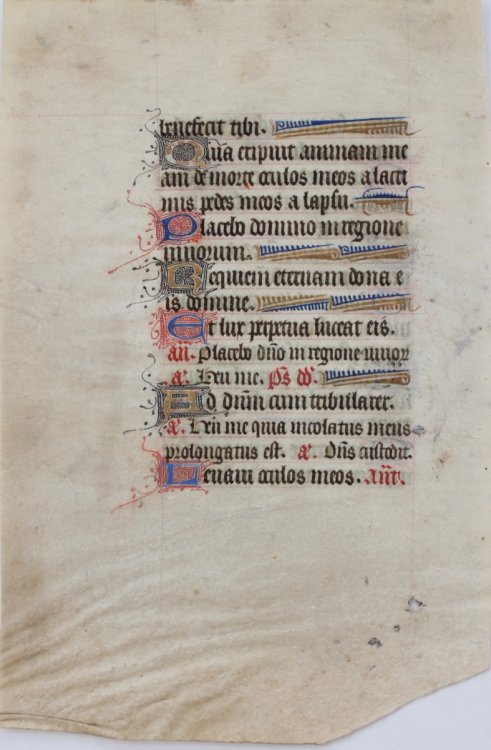 benefecit tibi.
Quia eripuit animam me
am de morte oculos meos a lacri
mis pedes meos a lapsu.
Placebo domino in regione
vivorum.
Requiem eternam dona e
is domine.
Et lux perpetua luceat eis.
añ. Placebo dño in regione vivor
a. Heu me. Ps dd.
Ad dñm cum tribularer.
a. Heu me quia incolatus meus
prolongatus est. a. Dñs custodit.
Levavi oculos meos. Añt.